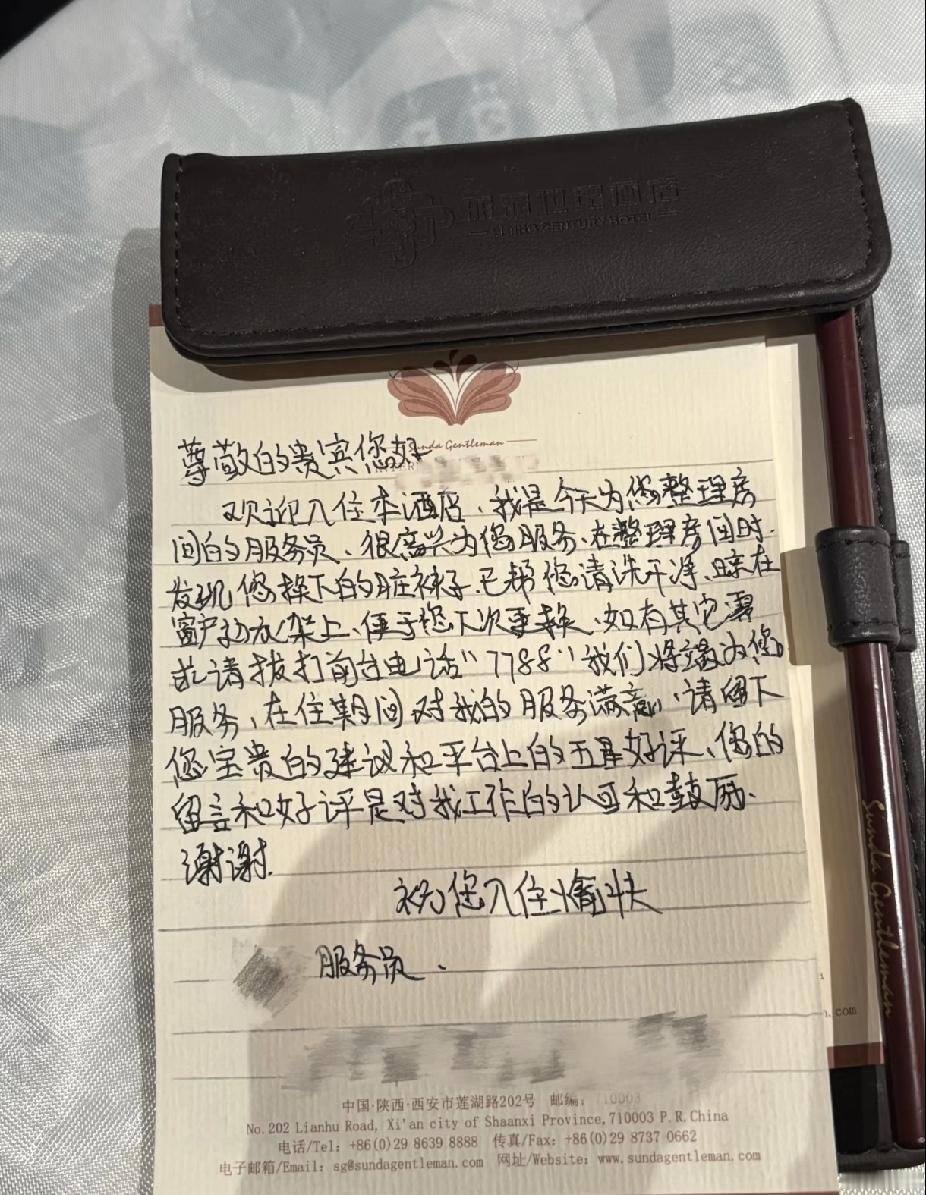 世纪酒店
Sunda Gentleman
尊敬的贵宾您好
欢迎入住本酒店、我是今天为您整理房
间的服务员、很高兴为您服务、在整理房间时.
发现您换下的脏袜子已帮您清洗干净、晾在
窗户边衣架上、便于您下次更换、如有其它需
求请拨打前台电话"7788"我们将竭为您
服务、在住期间对我的服务满意、请留下
您宝贵的建议和平台上的五星好评、您的
留言和好评是对我工作的认可和鼓励.
谢谢.
祝您入住愉快
服务员.
中国·陕西·西安市莲湖路202号 邮编: 710003
No.202 Lianhu Road, Xi'an city of Shaanxi Province,710003 P.R.China
电话/Tel: +86(0)29 8639 8888 传真/Fax: +86(0)29 8737 0662
电子邮箱/Email: sg@sundagentleman.com 网址/Website: www.sundagentleman.com
Sunda Gentleman